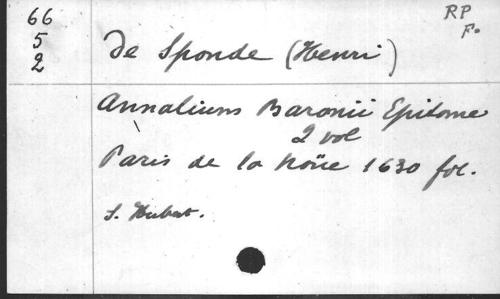 66
5
2
RP
F.
De Sponde (Henri)
Annalium Baronii Epitome
2 vol
Paris de la Noüe 1630 fol.
S. Hubert.